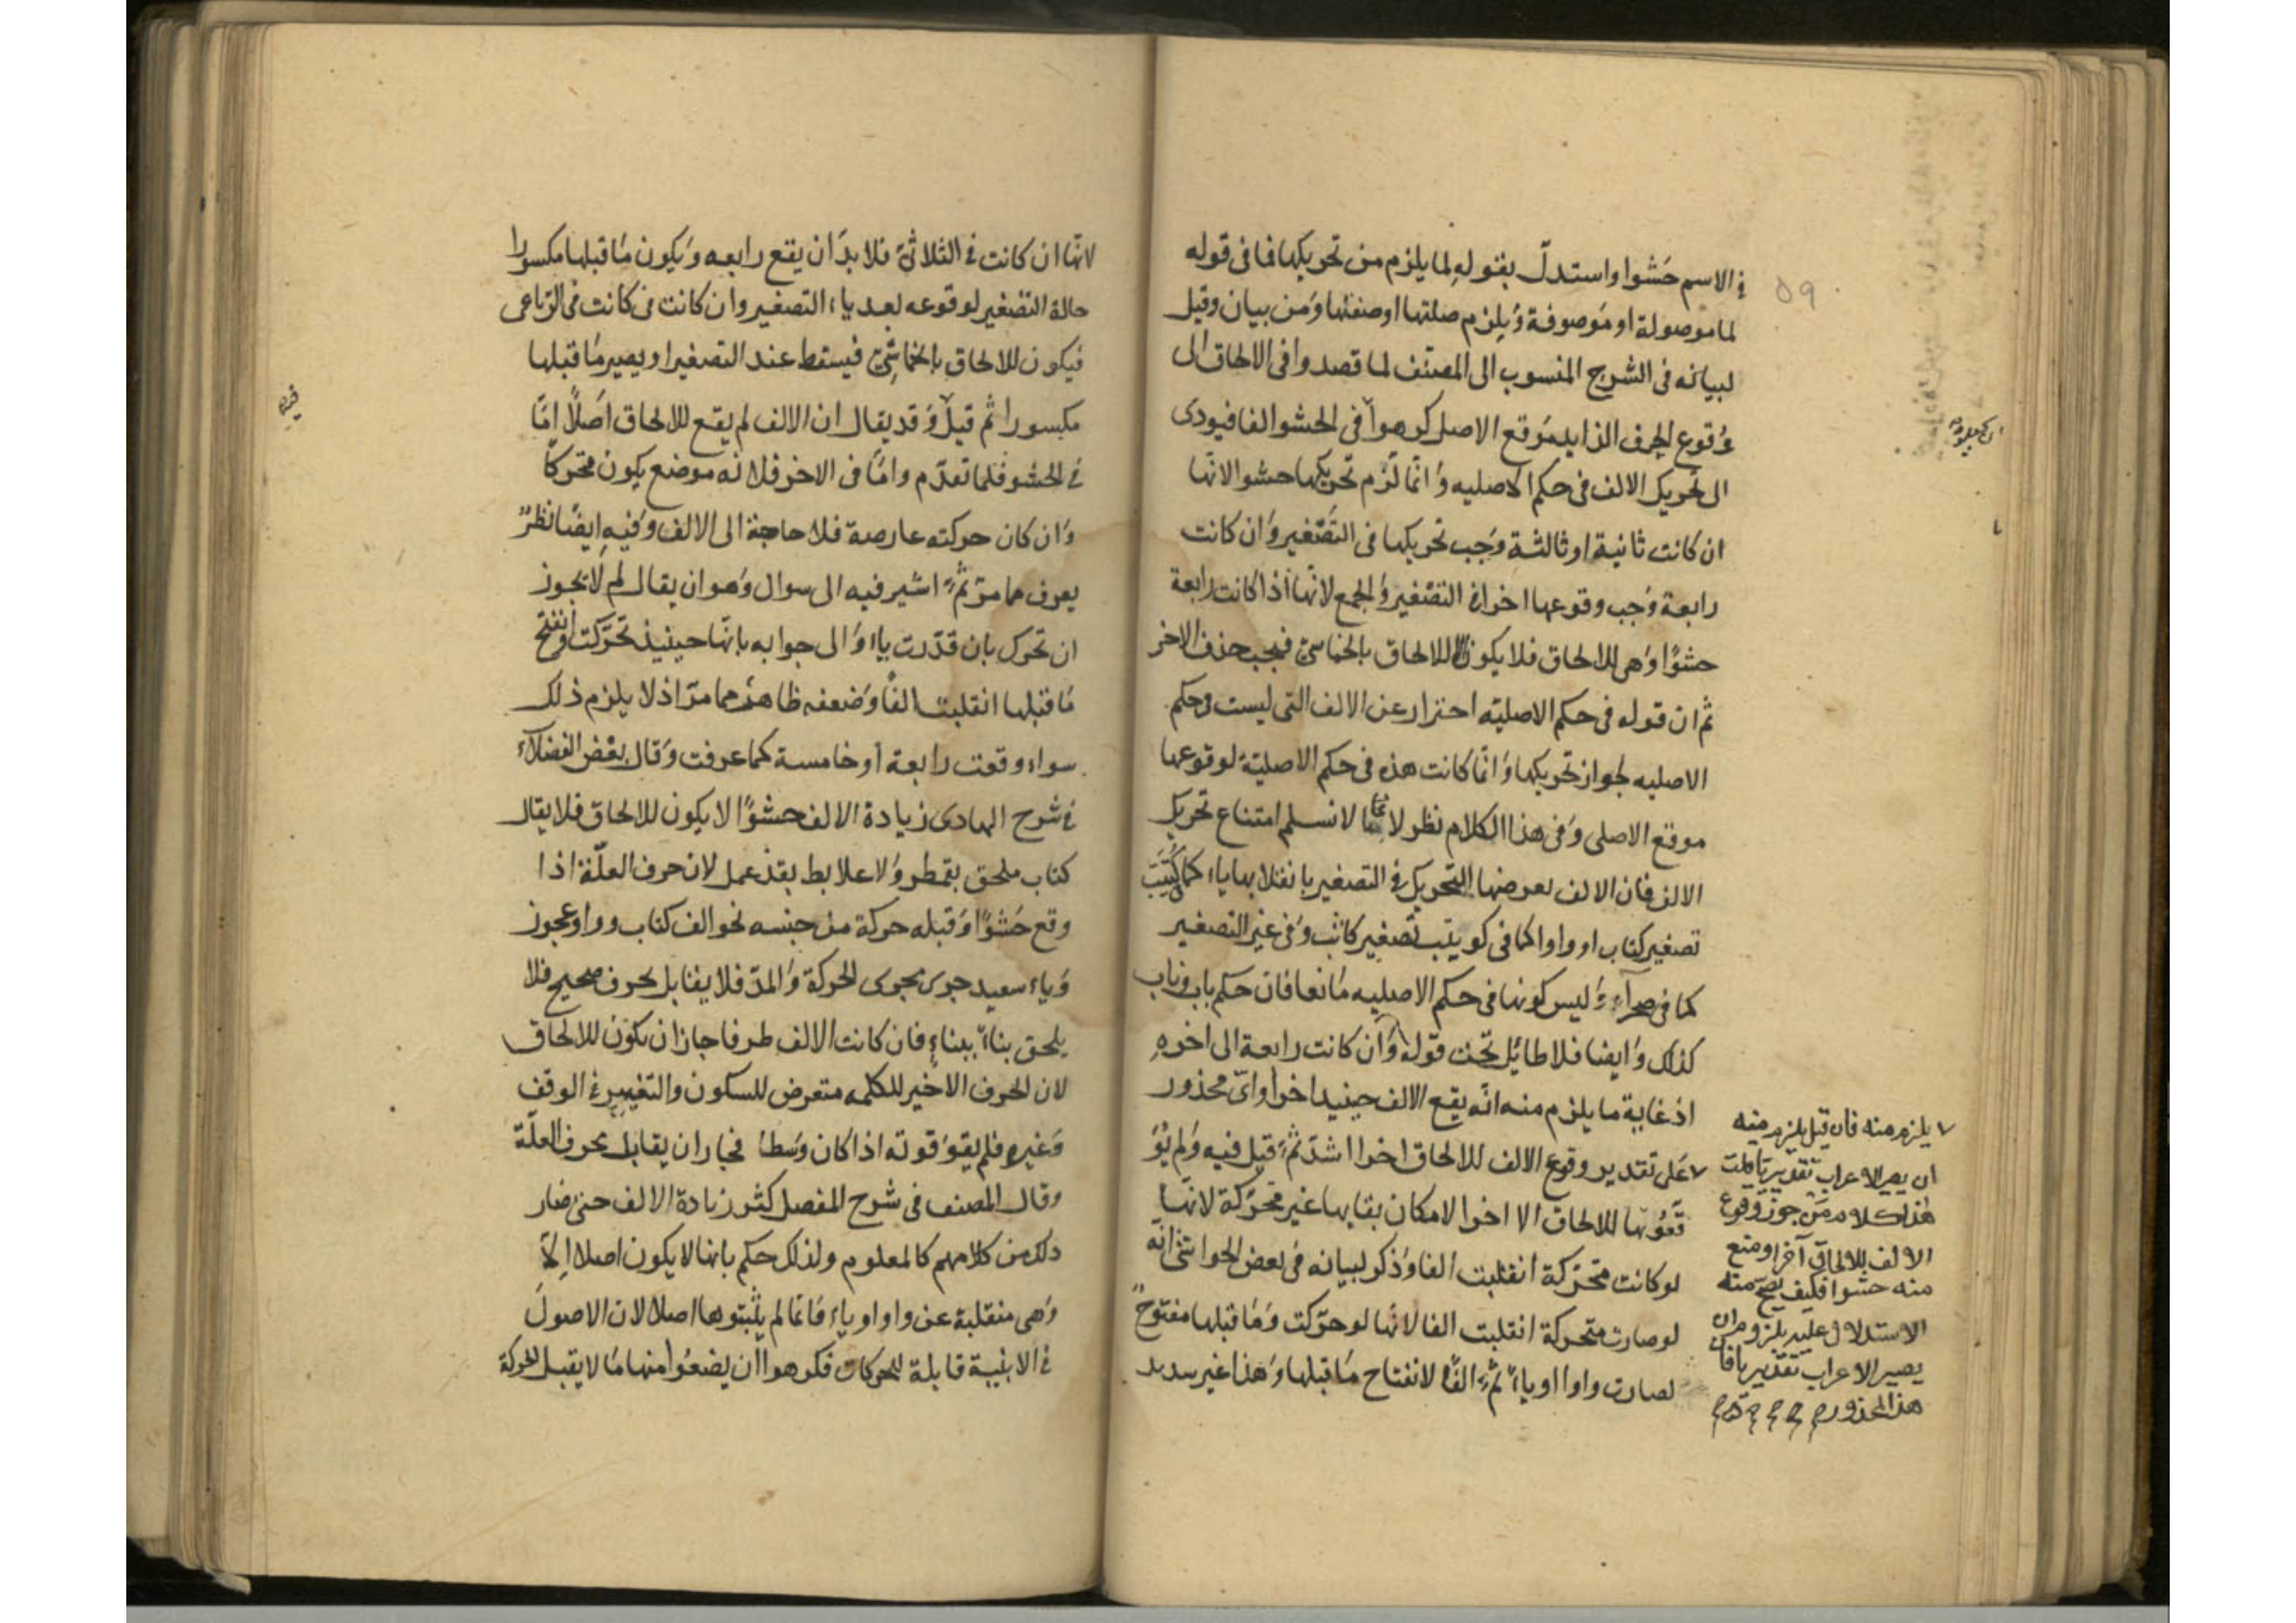 في الاسم حَشوا واستدلّ بقولهِ لما يلزم من تحريكها فما فى قوله
لما موصولة او مَوصوفة وَيلزم صلتها او صفتها وَمن بيان وقيل
لبيانه فى الشرح المنسوب الى المصنف لما قصدوا فى الالحاق الى
وُقوع الحرف الزايد مَوقع الاصل كرهوا فى الحشو الفا فيودى
الى تحريك الالف فى حكم الاصليه وَانّما لَزم تحريكها حشوا لانّها
ان كانت ثانية او ثالثة وَجب تحريكها فى التصَّغير وَان كانت
رابعة وَجب وقوعها اخرا فى التصّغير وَالجمع لانّها اذا كانت رابعة
حشوًا وَهى للالحاق فلا يكون الا للالحاق بالخماسىّ فيجب حذف الاخر
ثم ان قوله فى حكم الاصليّه احتراز عن الالف التى ليست فى حكم
الاصليه لجواز تحريكها وَانّما كانت هذه فى حكم الاصليّة لوقوعها
موقع الاصلى وَفى هذا الكلام نظر لانا لا نسلم امتناع تحريك
الالف فان الالف يعرضها التحريك فى التصغير بانقلابها ياء كما فى كُتَيِّب
تصغير كتاب او واوا كما فى كويتب تصغير كاتب وَفى غير التصغير
كما فى صحراء وَليس كونها فى حكم الاصليه مَانعا فان حكم باب وناب
كذلك وَايضا فلا طائل تحت قوله وَان كانت رابعة الى اخرهِ
اذ غاية ما يلزم منه انّه يقع الالف حينيذ اخرا واىّ محذور
٧ عَلى تقدير وقوع الالف للالحاق اخرا اشدّ ثمّ قيل فيه وَلم يُوْ
قّعُوّهَا للالحاق الا اخرا لامكان بقايها غير محرّكة لانّها
لو كانت متحرّكة انقلبت الفا وَذكر لبيانه فى بعض الحواشى انّه
لو صارت متحركة انقلبت الفا لانّها لو حرّكت وَمَا قبلها مفتوحٌ
لصارت واوا او ياءً ثم الفًا لانفتاح مَا قبلها وَهذا غير سديد
٥٩
٧ يلزم منه فان قيل يلزم منه
ان يصير الاعراب تقديريا قلت
هذا كلام من جوز وقوع
الالف للالحاق آخرا ومنع
منه حشوا فكيف يصح منه
الاستدلال عليه بلزوم ان
يصير الاعراب تقديريا فان
هذا المحذور
لانّها ان كانت فى الثلاثىّ فلا بدّ ان يقع رابعه وَيكون مَا قبلها مكسورا
حالة التصّغير لوقوعه بعد ياء التصغير وان كانت فى كانت فى الرّباعى
فيكون للالحاق بالخماسِىّ فيسقط عند التصغير او يصير مَا قبلها
مكسورا ثم قيل وَقد يقال ان الالف لم يقع للالحاق اصَلًا امّا
فى الحشو فلما تقدّم وامّا فى الاخر فلانه موضع يكون متحركا
وَان كان حركته عارضة فلا حاجة الى الالف وَفيهِ ايضًا نظرٌ
يعرف مما مرّ ثمّ اشير فيه الى سوال وَهو ان يقال لم لا يجوز
ان تحرك بان قدّرت ياء وَالى جوابه بانّها حينيذ تحرّكت وانفتح
مَا قبلها انقلبت الفًا وَضعفه ظاهر مما مرّ اذ لا يلزم ذلك
سواء وقعت رابعة أو خامسة كما عرفت وَقال بعْض الفضلاء
فى شرح الهادى زيادة الالف حشوًا لا يكون للالحاق فلا يقال
كتاب ملحق بقمطر وَلا علابط بقذعمل لان حرف العلّة اذا
وقع حَشوًا وَقبله حركة من جنسه نحو الف كتاب وواو عجوز
وَياء سعيد جرى مجرى الحركة وَالمدّ فلا يقابل بحرف صحيح فلا
يلحق بناءً ببناءٍ فان كانت الالف طرفا جاز ان يكون للالحاق
لان الحرف الاخير للكلمه متعرض للسكون والتغيير فى الوقف
وَغيره فلم يقوَ قوته اذا كان وَسطا فجاز ان يقابل بحرف العلّة
وقال المصنف فى شرح المفصل كثر زيادة الالف حتى صار
ذلك من كلامهم كالمعلوم ولذلك حكم بانها لا يكون اصلا اِلاّ
وَهى منقلبة عن واو او ياء فانّما لم يثبتوها اصلا لان الاصولَ
فى الابنية قابلة للحركات فكرهوا ان يضعُوا منها مَا لا يقبل الحركة
فيه